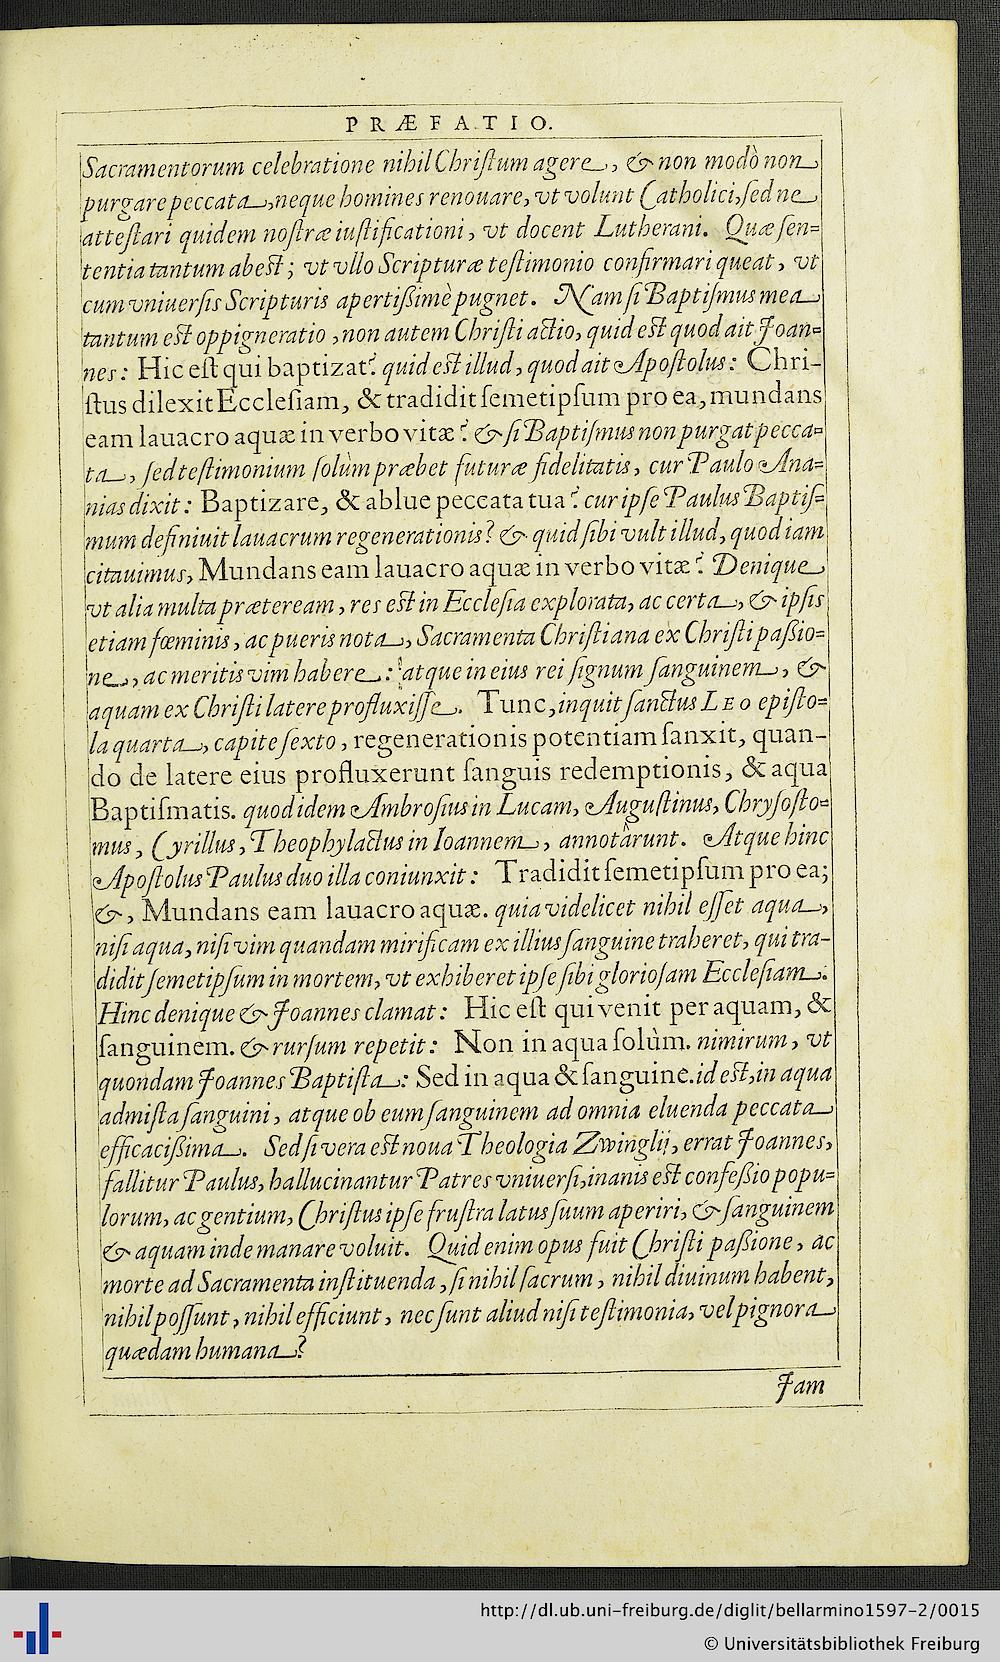 PRÆFATIO.
Sacramentorum celebratione nihil Chriſtum agere, & non modò non
purgare peccata, neque homines renouare, vt volunt Catholici, ſed ne
atteſtari quidem noſtræ iuſtificationi, vt docent Lutherani. Quæ ſen=
tentia tantum abeſt; vt vllo Scripturæ teſtimonio confirmari queat, vt
cum vniuerſis Scripturis apertißimè pugnet. Nam ſi Baptiſmus mea
tantum eſt oppigneratio, non autem Chriſti actio, quid eſt quod ait Joan=
nes: Hic eſt qui baptizat? quid eſt illud, quod ait Apoſtolus: Chri-
ſtus dilexit Eccleſiam, & tradidit ſemetipſum pro ea, mundans
eam lauacro aquæ in verbo vitæ? & ſi Baptiſmus non purgat pecca=
ta, ſed teſtimonium ſolùm præbet futuræ fidelitatis, cur Paulo Ana=
nias dixit: Baptizare, & ablue peccata tua? cur ipſe Paulus Baptiſ=
mum definiuit lauacrum regenerationis? & quid ſibi vult illud, quod iam
citauimus, Mundans eam lauacro aquæ in verbo vitæ? Denique
vt alia multa præteream, res eſt in Eccleſia explorata, ac certa, & ipſis
etiam fœminis, ac pueris nota, Sacramenta Chriſtiana ex Chriſti paßio=
ne, ac meritis vim habere: atque in eius rei ſignum ſanguinem, &
aquam ex Chriſti latere profluxiſſe. Tunc, inquit ſanctus LEO epiſto=
la quarta, capite ſexto, regenerationis potentiam ſanxit, quan-
do de latere eius profluxerunt ſanguis redemptionis, & aqua
Baptiſmatis. quod idem Ambroſius in Lucam, Auguſtinus, Chryſoſto=
mus, Cyrillus, Theophylactus in Ioannem, annotârunt. Atque hinc
Apoſtolus Paulus duo illa coniunxit: Tradidit ſemetipſum pro ea;
&, Mundans eam lauacro aquæ. quia videlicet nihil eſſet aqua,
niſi aqua, niſi vim quandam mirificam ex illius ſanguine traheret, qui tra-
didit ſemetipſum in mortem, vt exhiberet ipſe ſibi glorioſam Eccleſiam.
Hinc denique & Joannes clamat: Hic eſt qui venit per aquam, &
ſanguinem. & rurſum repetit: Non in aqua ſolùm. nimirum, vt
quondam Joannes Baptiſta: Sed in aqua & ſanguine. id eſt, in aqua
admiſta ſanguini, atque ob eum ſanguinem ad omnia eluenda peccata
efficacißima. Sed ſi vera eſt noua Theologia Zwinglij, errat Joannes,
fallitur Paulus, hallucinantur Patres vniuerſi, inanis eſt confeßio popu=
lorum, ac gentium, Chriſtus ipſe fruſtra latus ſuum aperiri, & ſanguinem
& aquam inde manare voluit. Quid enim opus fuit Chriſti paßione, ac
morte ad Sacramenta inſtituenda, ſi nihil ſacrum, nihil diuinum habent,
nihil poſſunt, nihil efficiunt, nec ſunt aliud niſi teſtimonia, vel pignora
quædam humana?
Jam
http://dl.ub.uni-freiburg.de/diglit/bellarmino1597-2/0015
© Universitätsbibliothek Freiburg